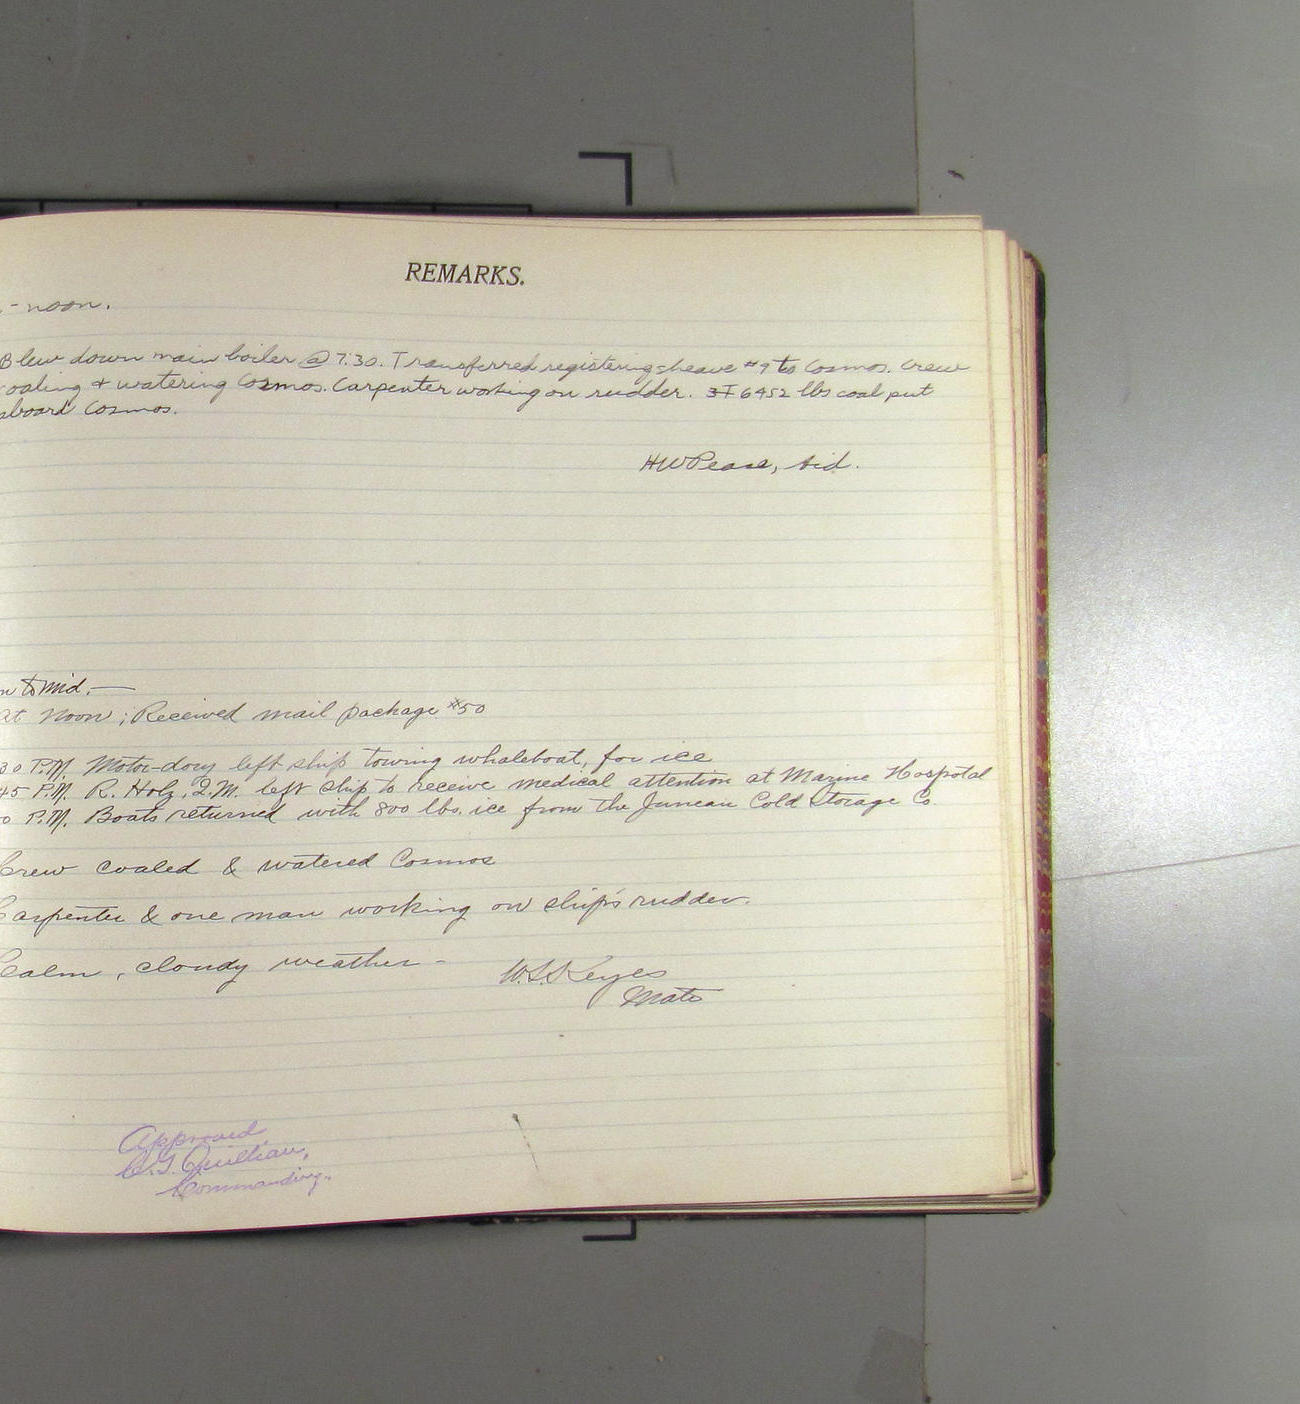 REMARKS.
- noon.
Blew down main boiler @ 7:30. Transferred registering sheave #9 to Cosmos. Crew
oaling & watering Cosmos. Carpenter working on rudder. 3T 6452 lbs coal put
aboard Cosmos.
HWPease, Aid.
n to Mid.—
At Noon; Received mail package #50
30 P.M. Motor-dory left ship towing whaleboat, for ice
45 P.M. R. Holz, Q.M. left ship to receive medical attention at Marine Hospital
0 P.M. Boats returned with 800 lbs. ice from the Juneau Cold Storage Co.
Crew coaled & watered Cosmos
Carpenter & one man working on ship's rudder.
Calm, cloudy weather -
W.S.Keyes
Mate
Approved
Quillian,
Commanding.